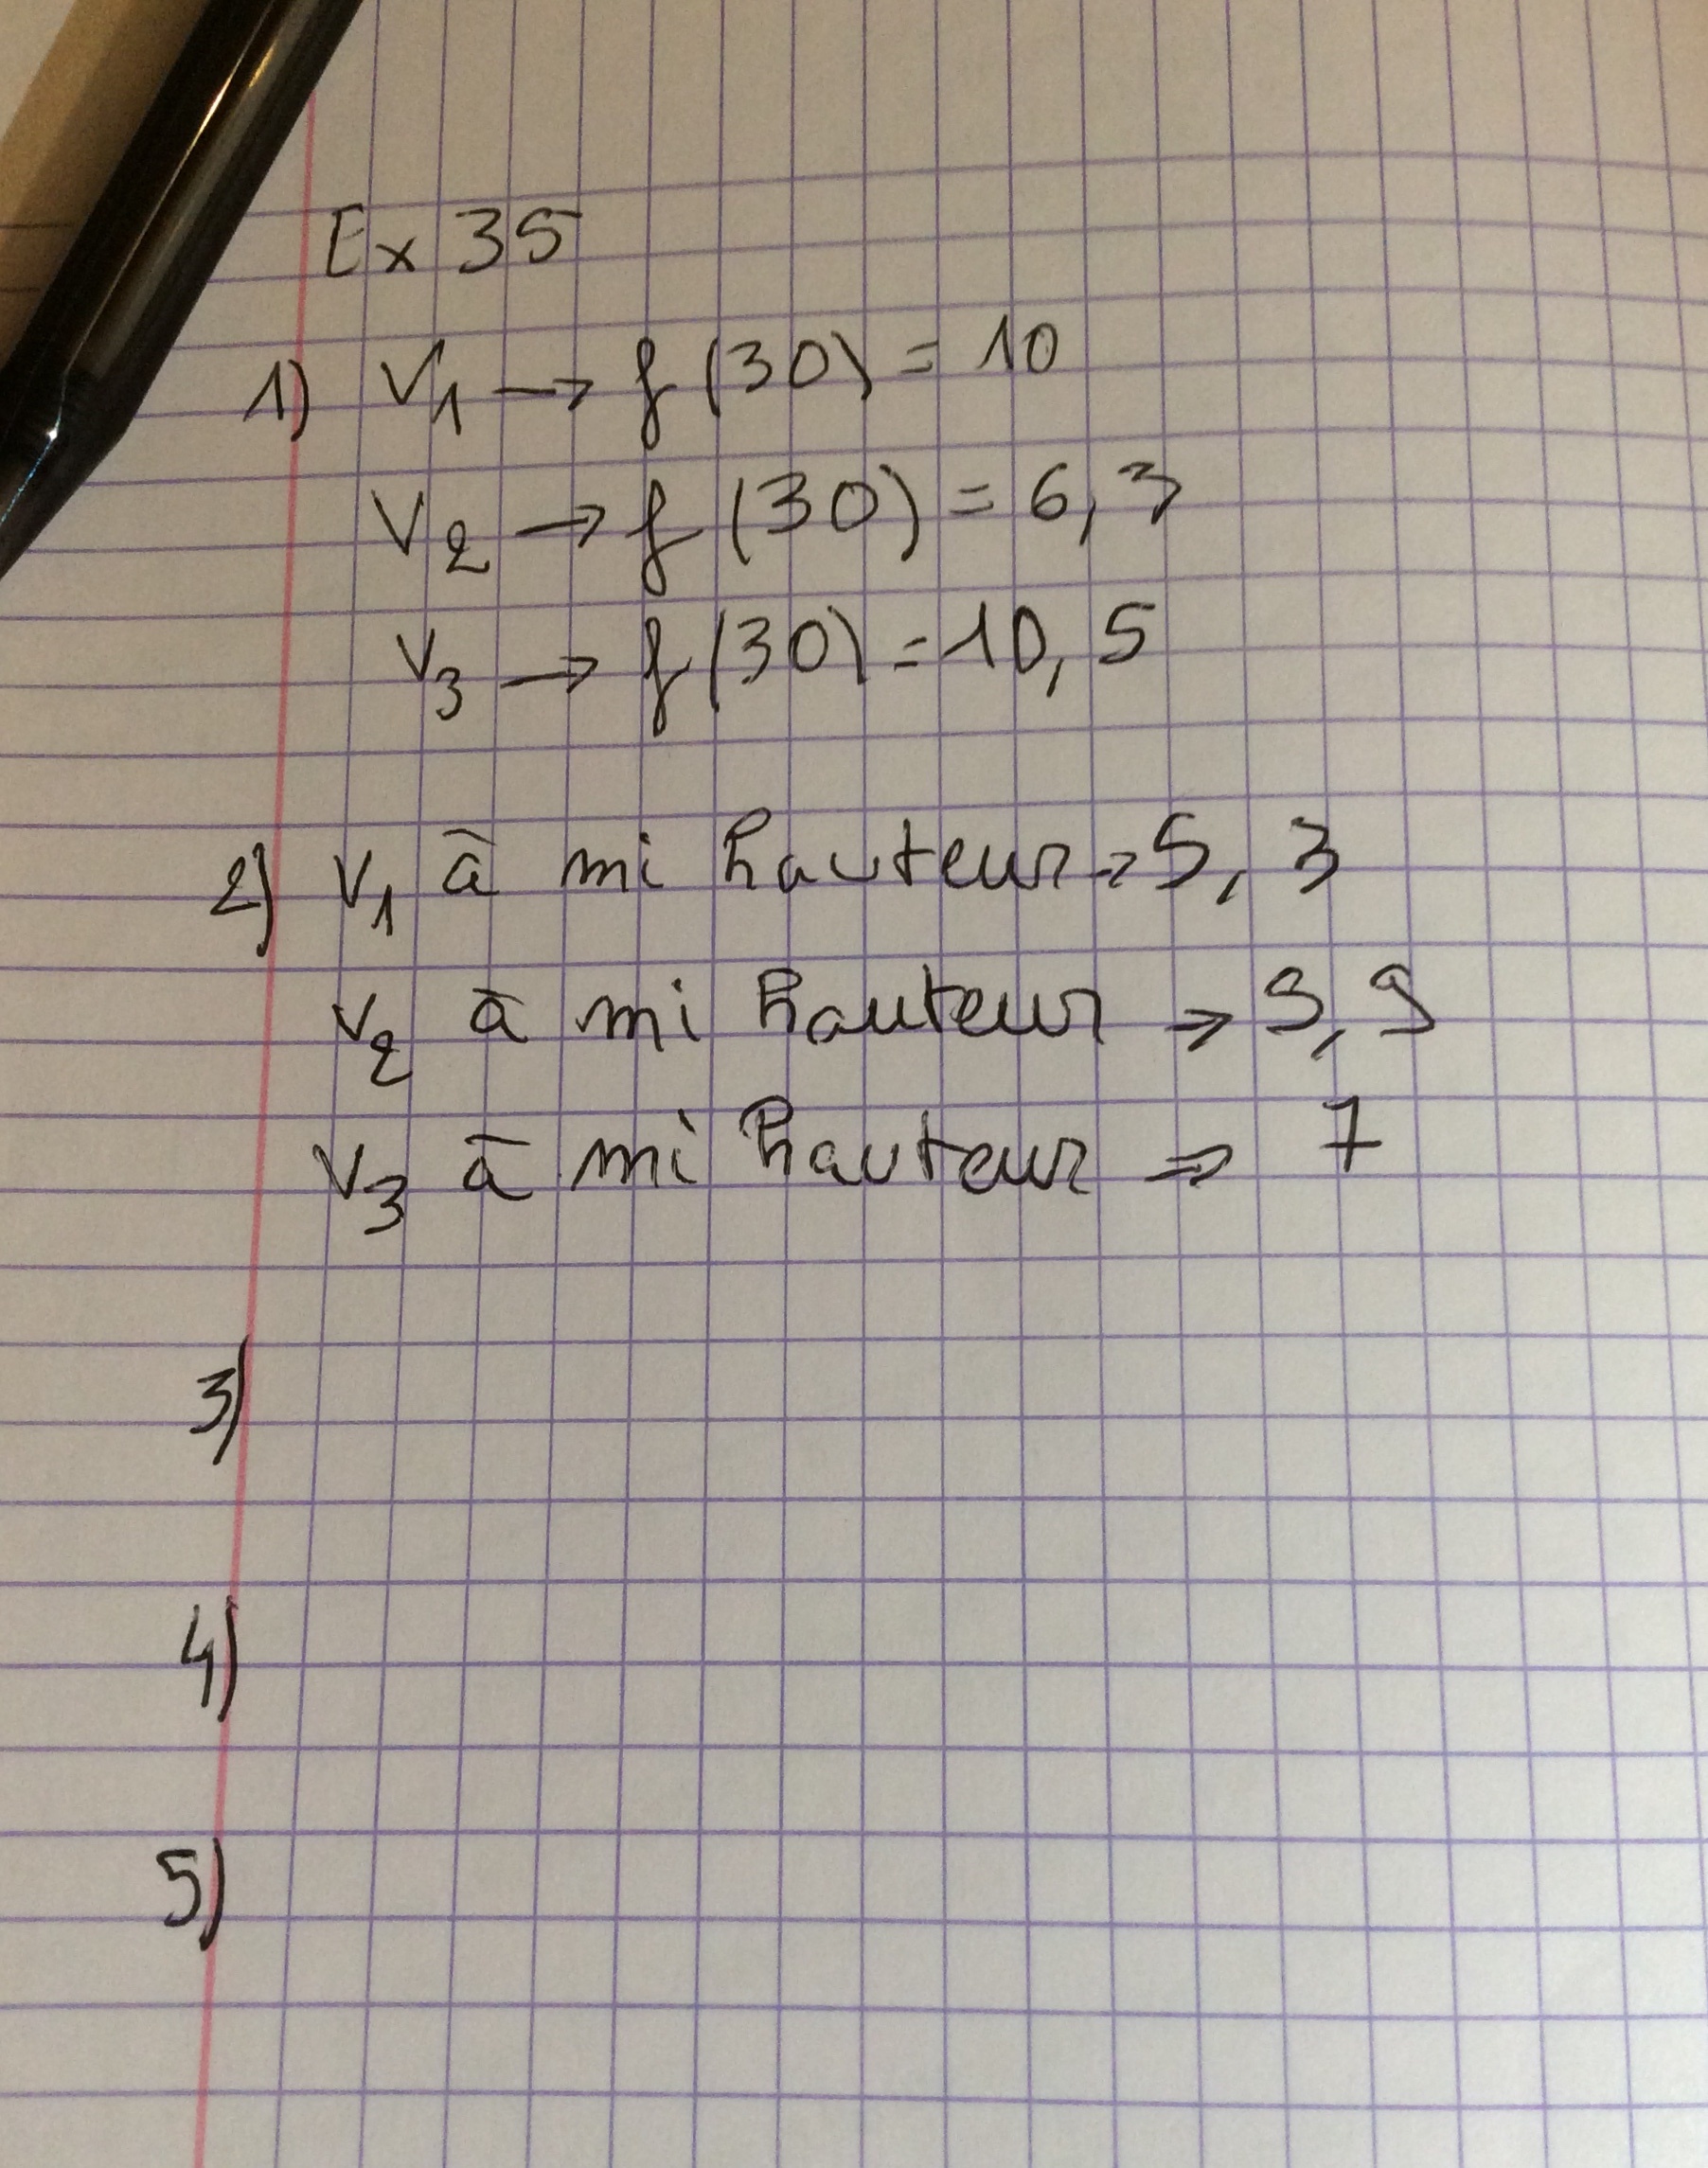 Ex 35
1) V1 → f(30) = 10
V2 → f(30) = 6,3
V3 → f(30) = 10,5
2) V1 à mi hauteur → 5,3
V2 à mi hauteur → 9,9
V3 à mi hauteur → 7
3)
4)
5)